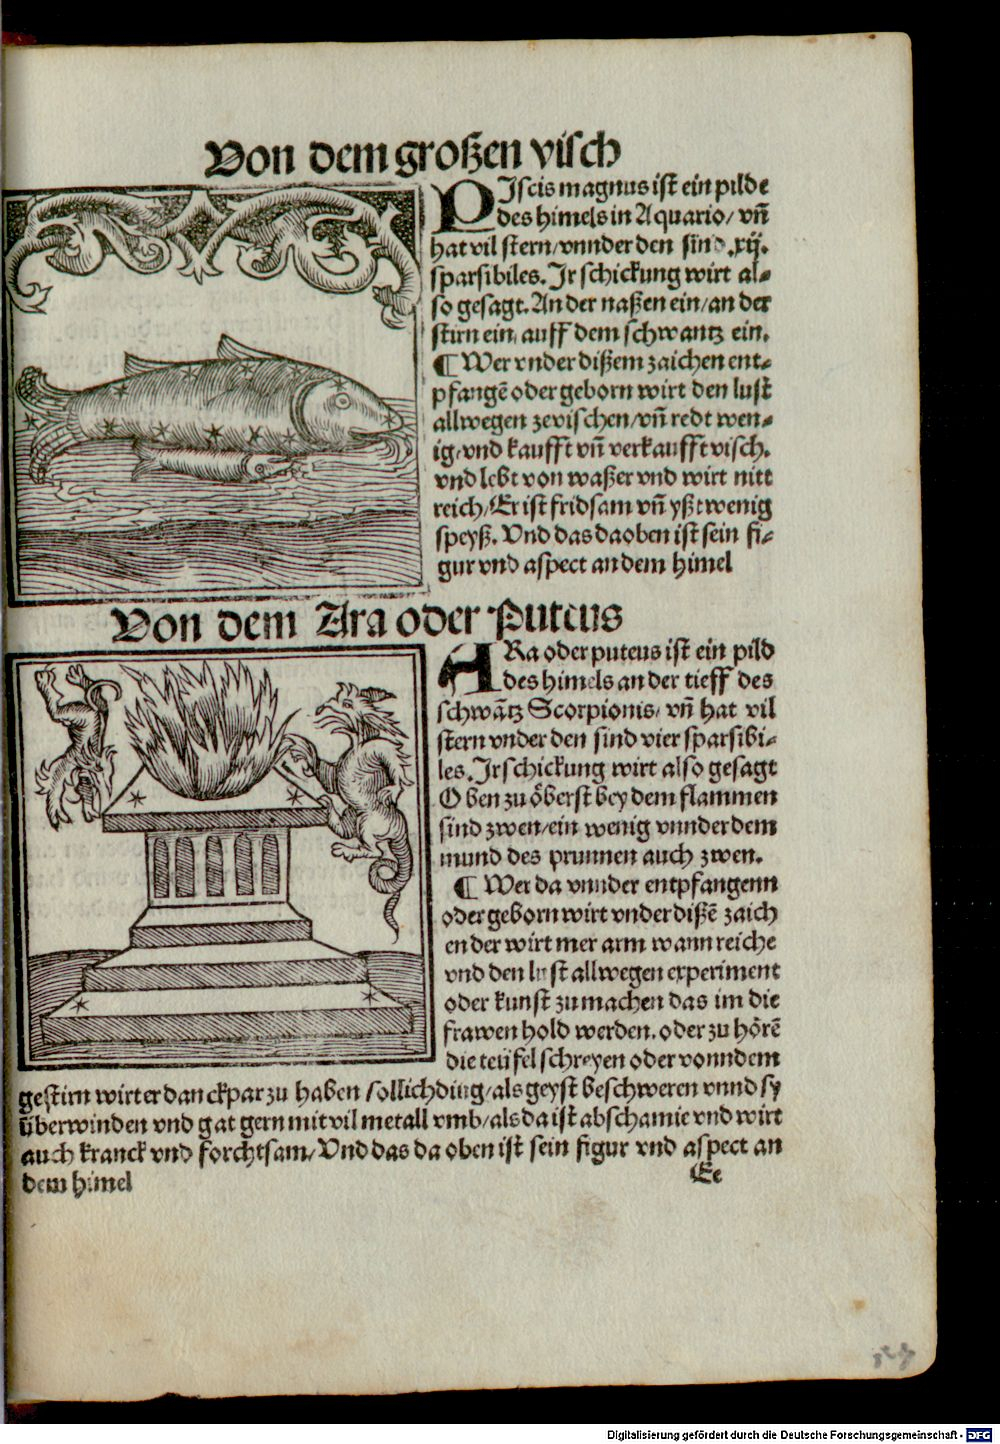 Von dem großen visch
PIscis magnus ist ein pilde
des himels in Aquario/ vñ
hat vil stern/vnnder den sind .xij.
sparsibiles. Ir schickung wirt al⸗
so gesagt. An der naßen ein/an der
stirn ein/ auff dem schwantz ein.
¶ Wer vnder dißem zaichen ent⸗
pfangē oder geborn wirt den lust
allwegen zevischen/vñ redt wen⸗
ig/vnd kaufft vñ verkaufft visch.
vnd lebt von waßer vnd wirt nitt
reich/Er ist fridsam vñ yßt wenig
speyß. Vnd das da oben ist sein fi⸗
gur vnd aspect an dem himel
Von dem Ara oder Puteus
ARa oder puteus ist ein pild
des himels an der tieff des
schwātz Scorpionis/ vñ hat vil
stern vnder den sind vier sparsibi⸗
les. Ir schickung wirt also gesagt
Oben zu öberst bey dem flammen
sind zwen/ein wenig vnnder dem
mund des prunnen auch zwen.
¶ Wer da vnnder entpfangenn
oder geborn wirt vnder dißē zaich
en der wirt mer arm wann reiche
vnd den lust allwegen experiment
oder kunst zu machen das im die
frawen hold werden. oder zu hörē
die teüfel schreyen oder vonn dem
gestirn wirt er danckpar zu haben sollich ding/als geyst beschweren vnnd sy
überwinden vnd gat gern mit vil metall vmb/als da ist abschamie vnd wirt
auch kranck vnd forchtsam/ Vnd das da oben ist sein figur vnd aspect an
dem himel
Ee
Digitalisierung gefördert durch die Deutsche Forschungsgemeinschaft - DFG